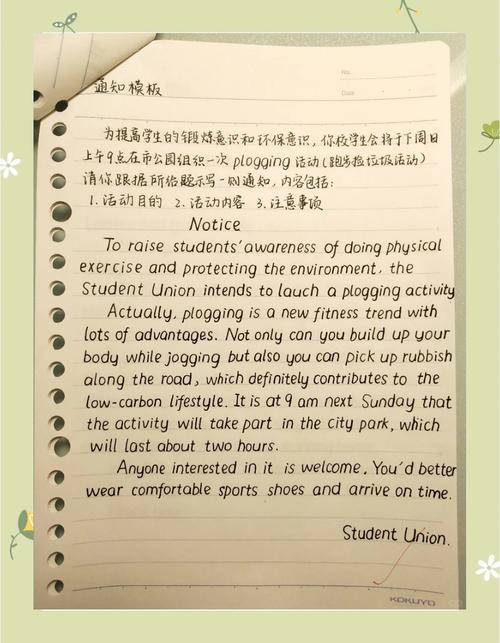 通知模板
No.
Date
为提高学生的锻炼意识和环保意识，你校学生会将于下周日
上午9点在市公园组织一次 plogging 活动(跑步捡垃圾活动)
请你跟据所给题示写一则通知，内容包括:
1.活动目的 2.活动内容 3.注意事项
Notice
To raise students' awareness of doing physical
exercise and protecting the environment, the
Student Union intends to lauch a plogging activity
Actually, plogging is a new fitness trend with
lots of advantages. Not only can you build up your
body while jogging but also you can pick up rubbish
along the road, which definitely contributes to the
low-carbon lifestyle. It is at 9 am next Sunday that
the activity will take part in the city park, which
will last about two hours.
Anyone interested in it is welcome. You'd better
wear comfortable sports shoes and arrive on time.
Student Union.
KOKUYO